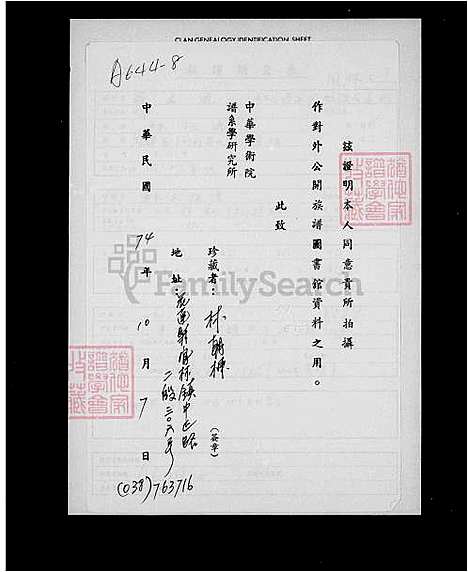 CLAN GENEALOGY IDENTIFICATION SHEET
A644-8
茲證明本人同意貴所拍攝
作對外公開族譜圖書館資料之用。
此致
中華學術院
譜系學研究所
珍藏者：林朝棟
(簽章)
地址：花蓮縣鳳林鎮中正路
二段三〇六号
(038)763716
中華民國74年10月7日
FamilySearch